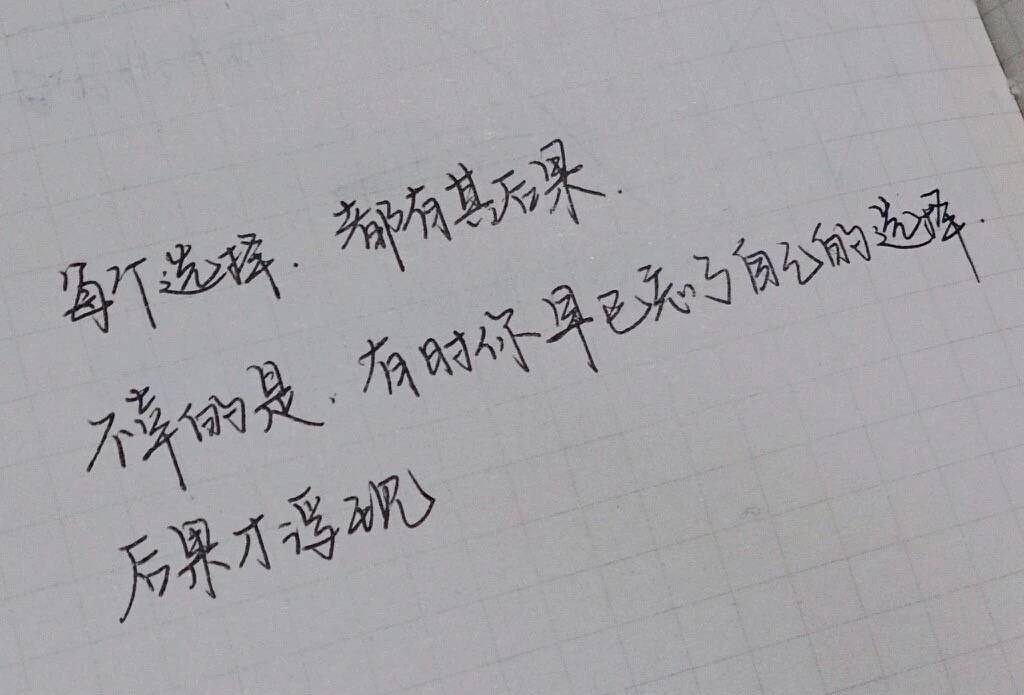 每个选择.都有其后果.
不幸的是.有时你早已忘了自己的选择.
后果才浮现